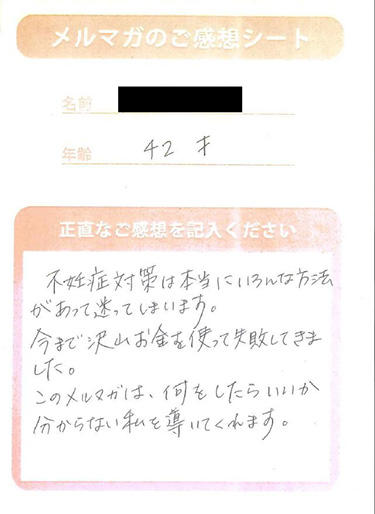 メルマガのご感想シート
名前
年齢 42 才
正直なご感想を記入ください
不妊症対策は本当にいろんな方法
があって迷ってしまいます。
今まで沢山お金を使って失敗してきま
した。
このメルマガは、何をしたらいいか
分からない私を導いてくれます。